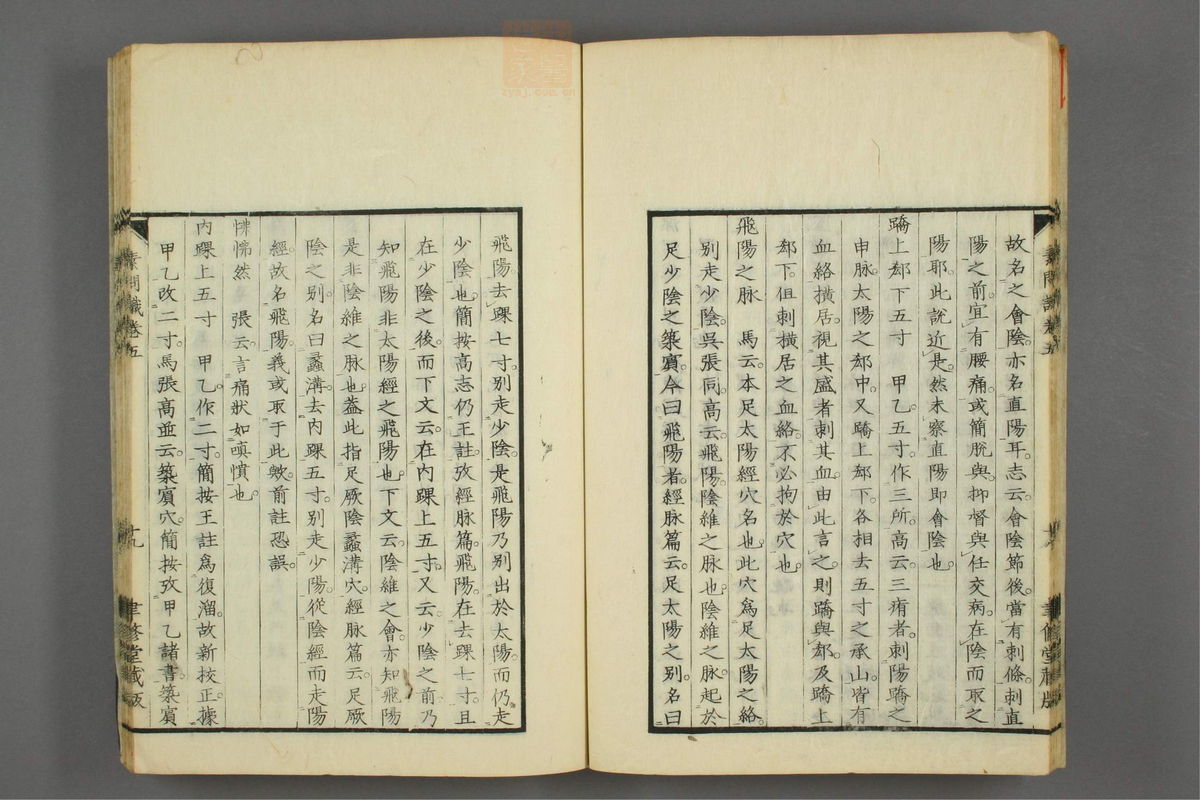 故名之會陰亦名直陽耳志云會陰節後當有刺條刺直
陽之前宜有腰痛或簡脫與抑督與任交病在陰而取之
陽耶此說近是然未察直陽即會陰也
蹻上郄下五寸　甲乙五寸作三所高云三痏者刺陽蹻之
申脉太陽之郄中又蹻上郄下各相去五寸之承山皆有
血絡橫居視其盛者刺其血由此言之則蹻與郄及蹻上
郄下但刺橫居之血絡不必拘於穴也
飛陽之脉　馬云本足太陽經穴名也此穴爲足太陽之絡
别走少陰吳張同高云飛陽陰維之脉也陰維之脉起於
足少陰之築賓今曰飛陽者經脉篇云足太陽之别名曰
飛陽去踝七寸别走少陰是飛陽乃别出於太陽而仍走
少陰也簡按高志仍王註攷經脉篇飛陽在去踝七寸且
在少陰之後而下文云在内踝上五寸又云少陰之前乃
知飛陽非太陽經之飛陽也下文云陰維之會亦知飛陽
是非陰維之脉也葢此指足厥陰蠡溝穴經脉篇云足厥
陰之别名曰蠡溝去内踝五寸别走少陽從陰經而走陽
經故名飛陽義或取于此歟前註恐誤
怫怫然　張云言痛狀如嗔憤也
内踝上五寸　甲乙作二寸簡按王註爲復溜故新校正據
甲乙改二寸馬張高並云築賓穴簡按攷甲乙諸書築賓
素問識卷五
十九
聿修堂藏版
聿修堂藏版